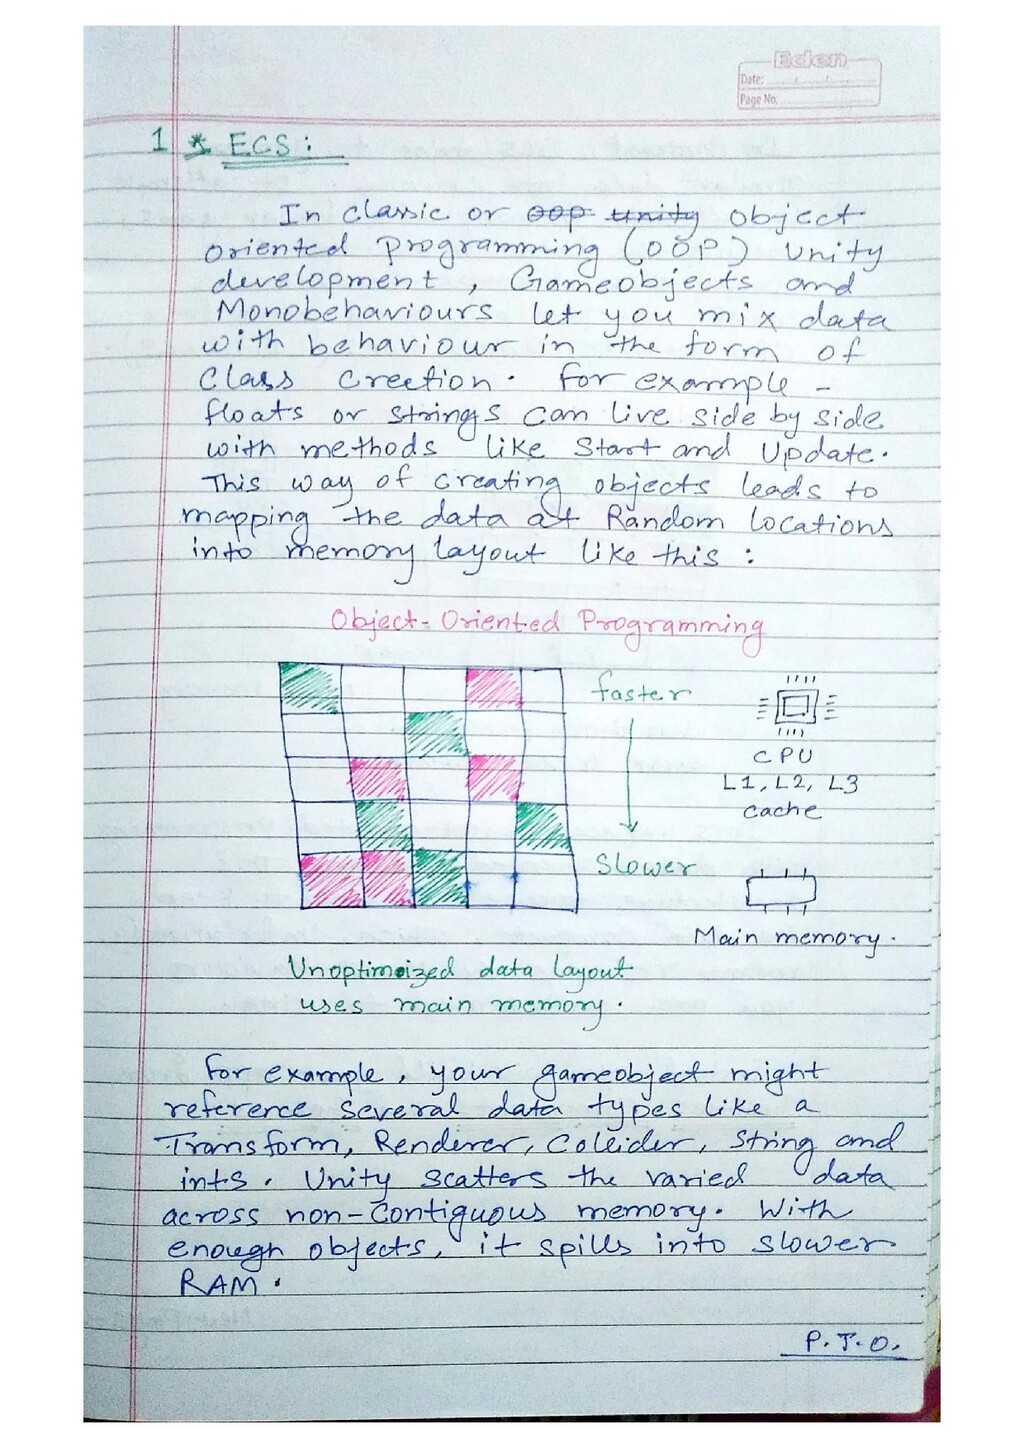 Eden
Date:
Page No.
1 * ECS :
In classic or oop unity object
oriented programming (OOP) Unity
development, Gameobjects and
Monobehaviours let you mix data
with behaviour in the form of
Class Creetion. For example -
floats or strings can live side by side
with methods like Start and Update.
This way of creating objects leads to
mapping the data at Random locations
into memory layout like this :
Object-Oriented Programming
faster
CPU
L1, L2, L3
cache
Slower
Main memory.
Unoptimized data layout
uses main memory.
For example, your gameobject might
reference several data types like a
Transform, Renderer, Collider, String and
ints. Unity scatters the varied data
across non-contiguous memory. With
enough objects, it spills into slower
RAM.
P.T.O.